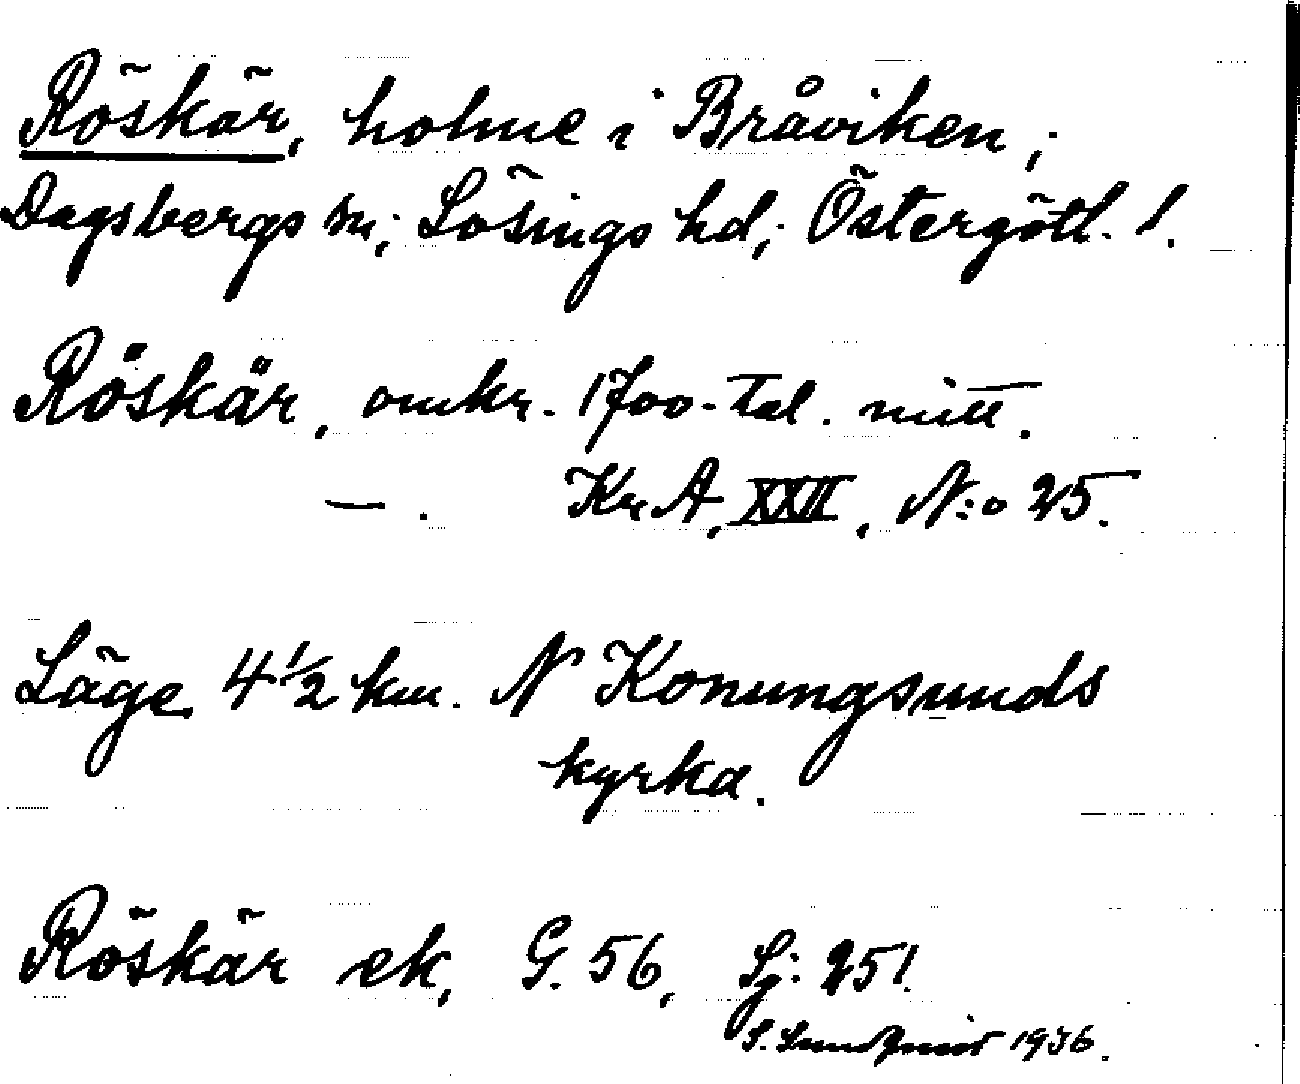 Röskär, holme i Bråviken,;
Dagsbergs sn,; Lösings hd,; Östergötl. l.
Röskär, omkr. 1700-tal. mitt.
— . Kr.A, XXII, N:o 25.
Läge 4 1/2 km. N Konungsunds
kyrka.
Röskär ek, G. 56, Sj: 251.
S. Sundqvist 1936.